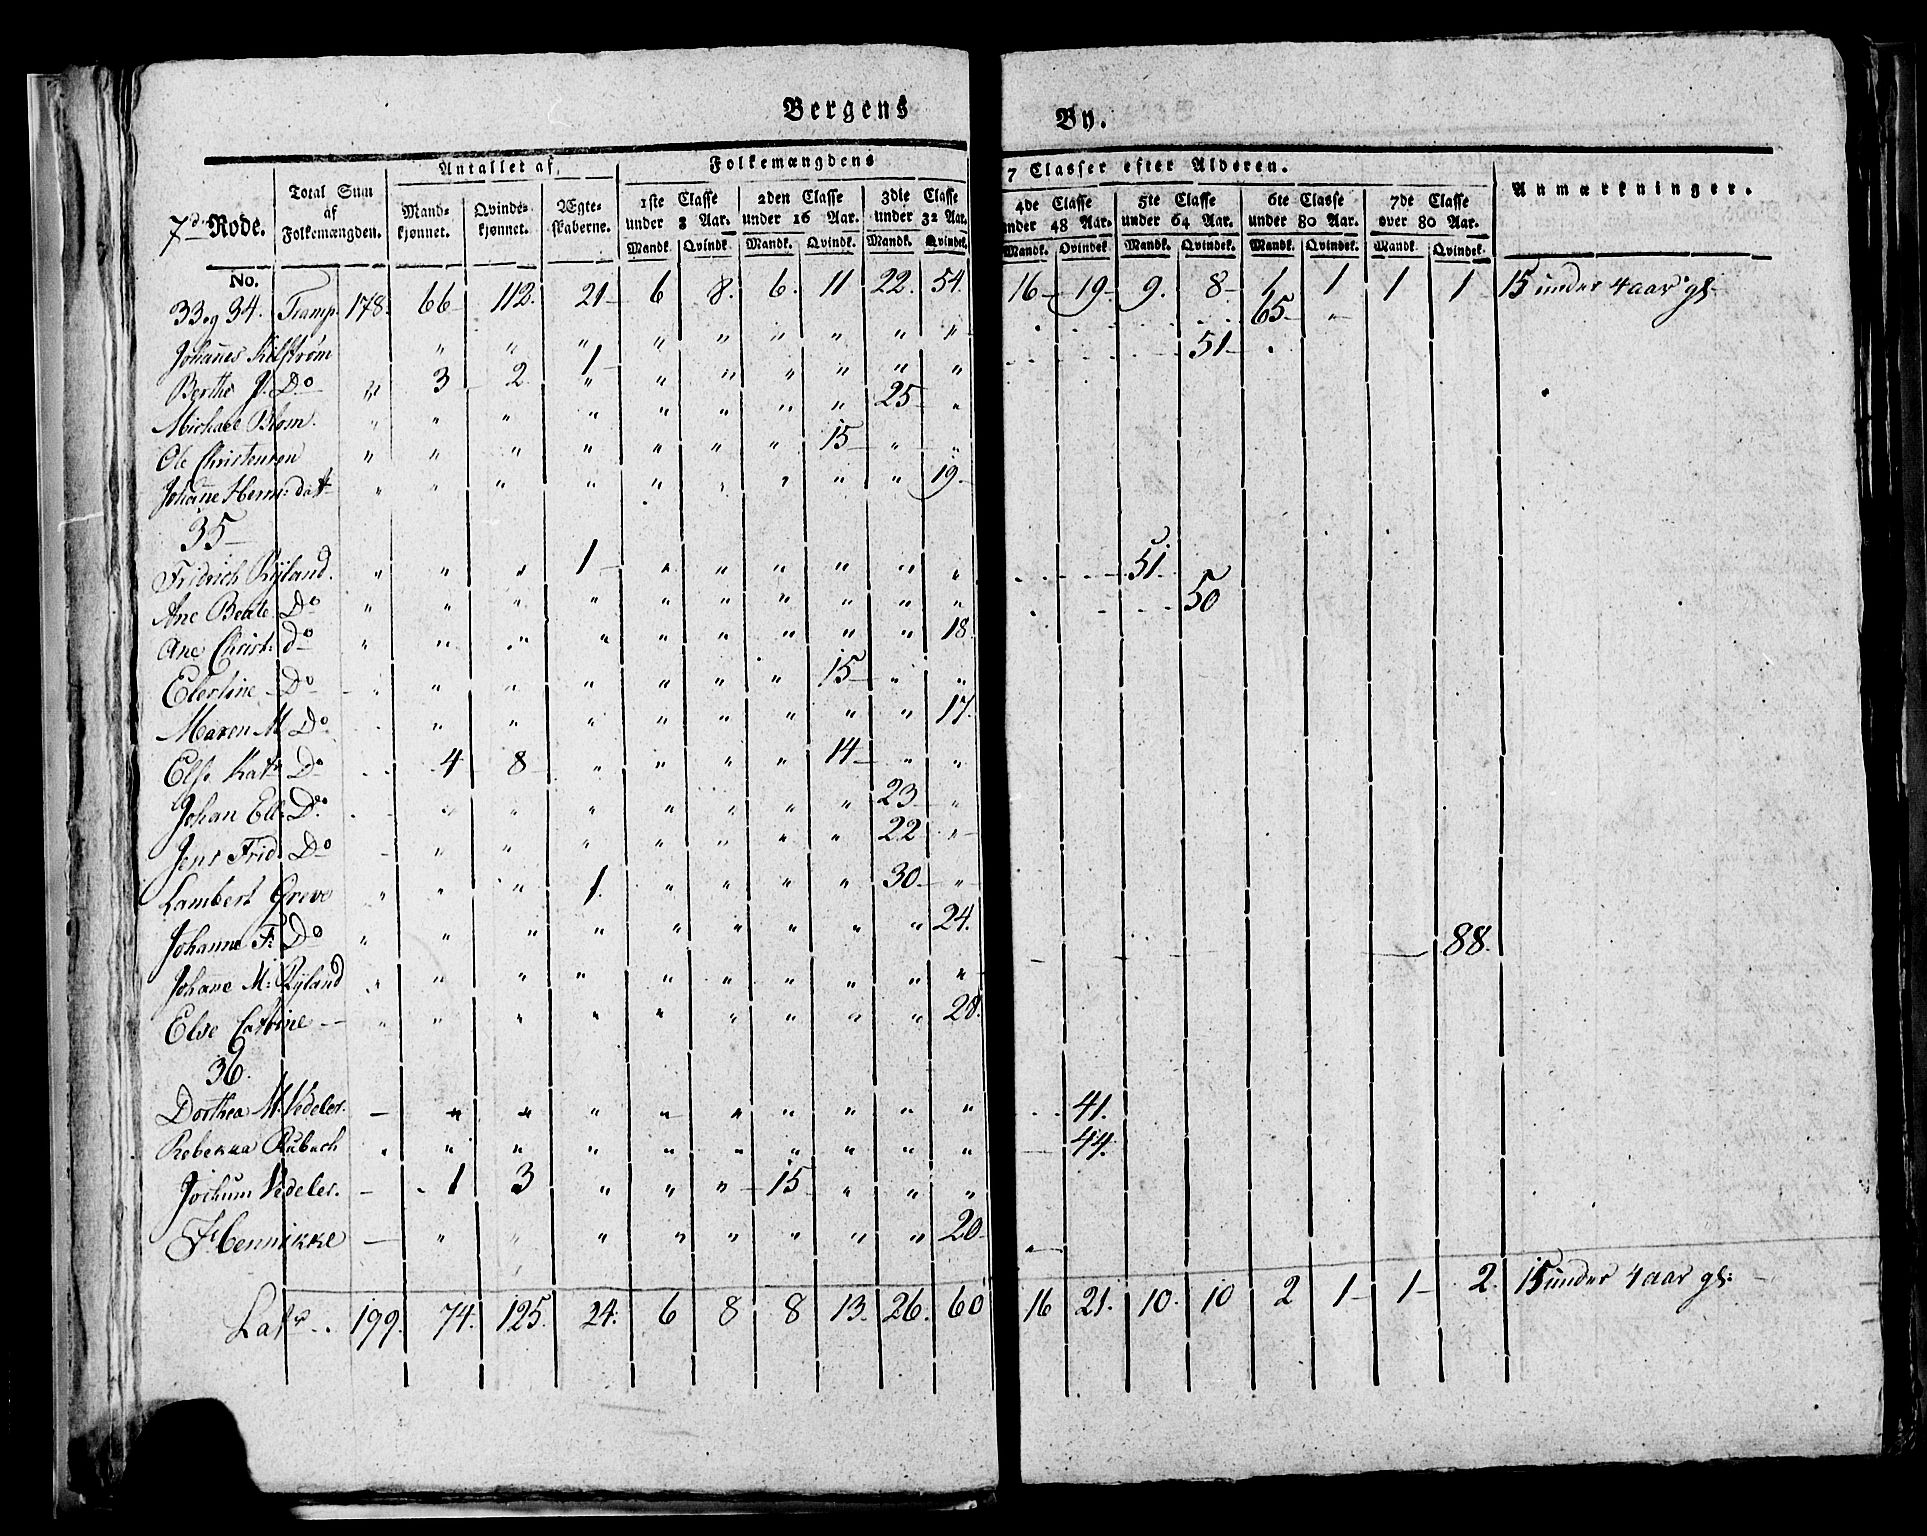 Bergens By.
7de Rode. Total Sum af Folkemængden. Antallet af, Mandkjønnet. Qvindekjønnet. Ægteskaberne. Folkemængdens 7 Classer efter Alderen. Anmærkninger.
1ste Classe under 8 Aar. 2den Classe under 16 Aar. 3die Classe under 32 Aar. 4de Classe under 48 Aar. 5te Classe under 64 Aar. 6te Classe under 80 Aar. 7de Classe over 80 Aar.
Mandk. Qvindk. Mandk. Qvindk. Mandk. Qvindek. Mandk. Qvindek. Mandk. Qvindek. Mandk. Qvindek. Mandk. Qvindek.
No.
33 og 34. Transp. 178. 66 112. 21 6 8. 6. 11 22. 54. 16 19 9. 8 1 1 1 1 15 under 4 aar gl.
Johannes Kilstrøm " " " " " " " " " " 65 "
Berthe J. Do " 3 2 1 " " " " " " 51
Michael Blom. " " " " " " " " 25 "
Ole Christensen " " " " " " " 15 " "
Johanne Herm: dat " " " " " " " " " 19.
35
Fridrich Ryland. " " " 1 " " " " " " 51.
Ane Beate Do " " " " " " " " " " 50
Ane Christ: do " " " " " " " " " 18
Elertine Do " " " " " " " 15 " "
Maren M Do " " " " " " " " 17.
Else Kat: Do 4 8 " " " " 14 " "
Johan Ell: Do. " " " " " " " 23 "
Jens Frid. Do " " " " " " " 22 "
Lambert Greve " " " 1. " " " " 30 "
Johanne F: Do " " " " " " " " " 24.
Johane M: Ryland " " " " " " " " " " 88.
Else Catrine " " " " " " " " " 28.
36.
Dorthea M. Vedeler. " " " " " " " " " 41.
Rebekka Rubach " " " " " " " " " " 44.
Jochum Vedeler. 1 3 " " " 15 " " "
" " " " " " " " " 20
Lats.. 199. 74. 125. 24. 6 8 8 13. 26. 60 16 21. 10. 10 2 1 1 2. 15 under 4 aar gl: